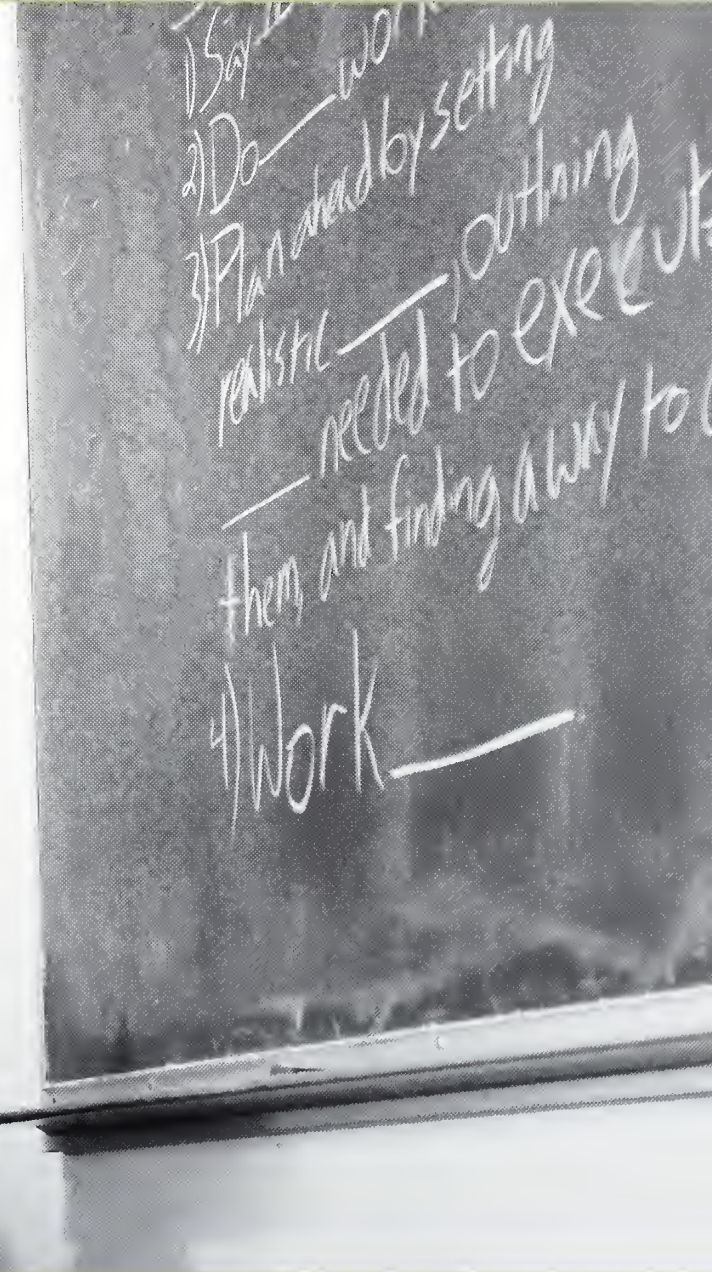 1) Say
2) Do ___ work
3) Plan ahead by setting
realistic ___, outlining
___ needed to execute
them, and finding a way to
4) Work ___